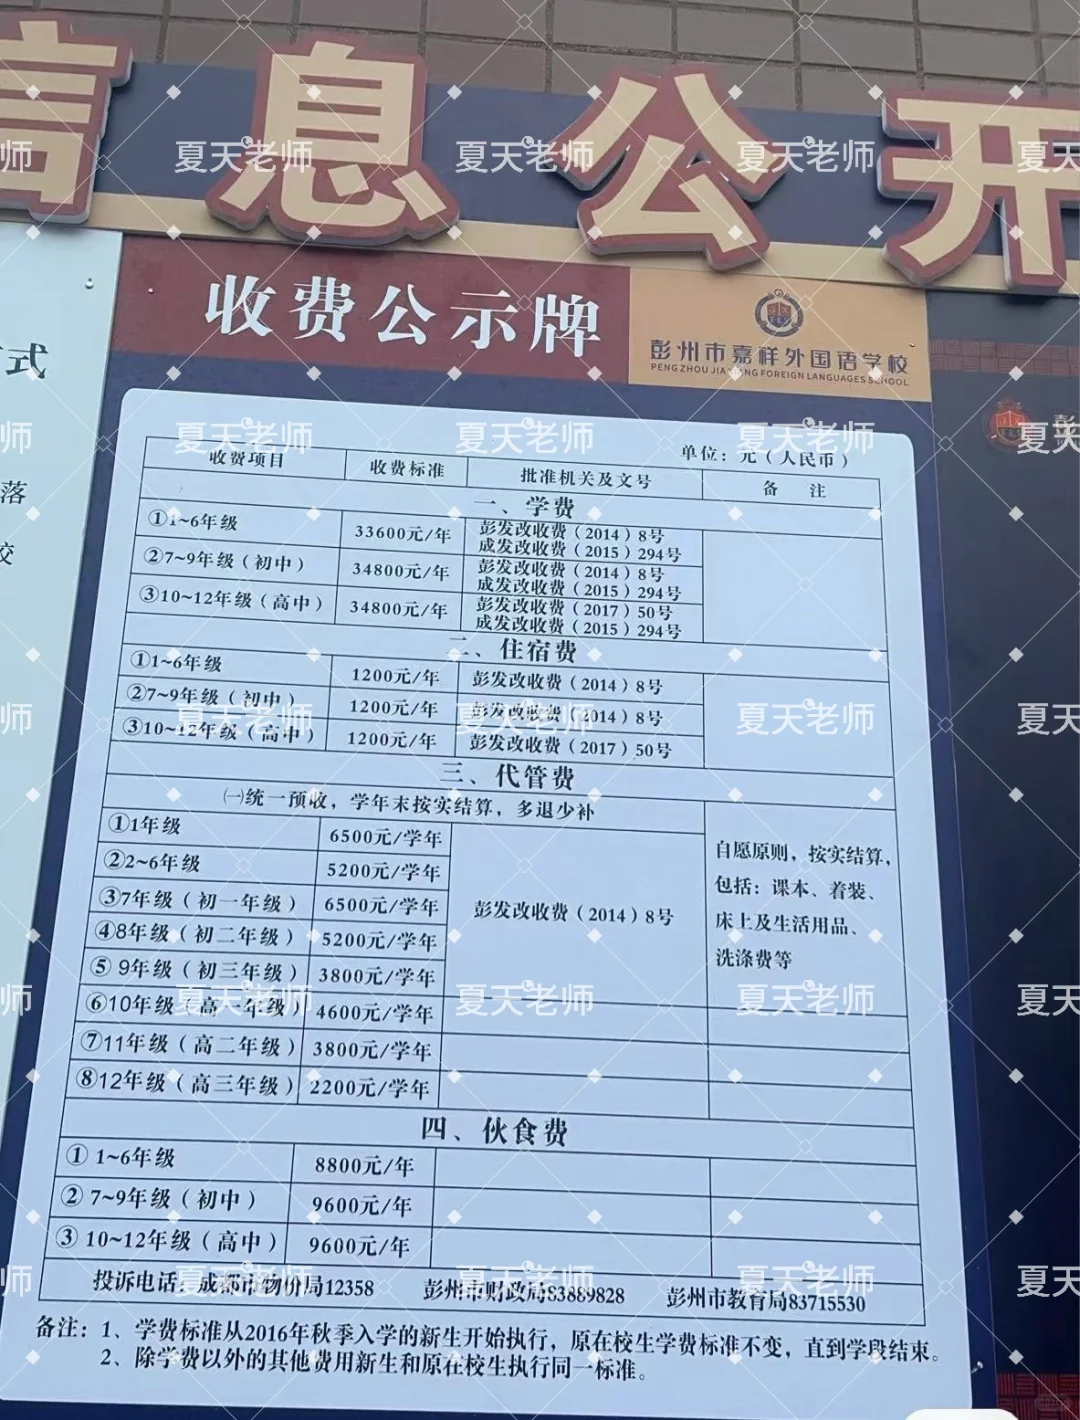 信息公开
收费公示牌
彭州市嘉祥外国语学校
PENG ZHOU JIA XIANG FOREIGN LANGUAGES SCHOOL
式
落
校
单位：元（人民币）
收费项目 收费标准 批准机关及文号 备 注
一、学费
①1~6年级 33600元/年 彭发改收费（2014）8号
成发改收费（2015）294号
②7~9年级（初中） 34800元/年 彭发改收费（2014）8号
成发改收费（2015）294号
③10~12年级（高中） 34800元/年 彭发改收费（2017）50号
成发改收费（2015）294号
二、住宿费
①1~6年级 1200元/年 彭发改收费（2014）8号
②7~9年级（初中） 1200元/年 彭发改收费（2014）8号
③10~12年级（高中） 1200元/年 彭发改收费（2017）50号
三、代管费
㈠统一预收，学年末按实结算，多退少补
①1年级 6500元/学年
②2~6年级 5200元/学年
③7年级（初一年级） 6500元/学年
④8年级（初二年级） 5200元/学年
⑤ 9年级（初三年级） 3800元/学年
⑥10年级（高一年级） 4600元/学年
⑦11年级（高二年级） 3800元/学年
⑧12年级（高三年级） 2200元/学年
彭发改收费（2014）8号
自愿原则，按实结算，
包括：课本、着装、
床上及生活用品、
洗涤费等
四、伙食费
① 1~6年级 8800元/年
② 7~9年级（初中） 9600元/年
③ 10~12年级（高中） 9600元/年
投诉电话：成都市物价局12358 彭州市财政局83889828 彭州市教育局83715530
备注：1、学费标准从2016年秋季入学的新生开始执行，原在校生学费标准不变，直到学段结束。
2、除学费以外的其他费用新生和原在校生执行同一标准。
夏天老师